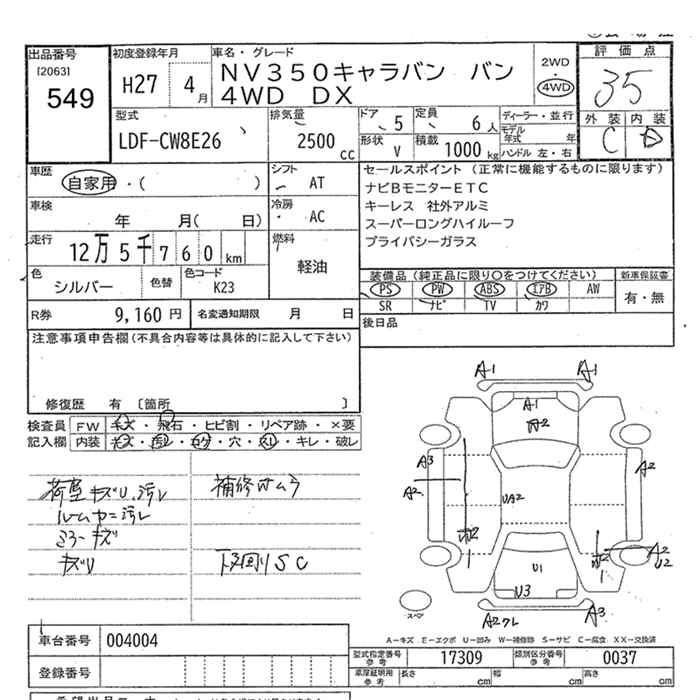 出品番号 初度登録年月 車名・グレード 評価点
[2063] H27 4月 NV350キャラバン バン 2WD 35
549 4WD DX 4WD
型式 排気量 ドア 定員 ディーラー・並行 外装 内装
LDF-CW8E26 2500cc 5 6人 モデル年式 年 C D
形状 V 積載 1000kg ハンドル 左・右
車歴 シフト セールスポイント (正常に機能するものに限ります)
自家用・( ) AT ナビBモニターETC
車検 冷房 キーレス 社外アルミ
年 月( 日) AC スーパーロングハイルーフ
走行 燃料 プライバシーガラス
12万5千760km 軽油
色 色替 色コード 装備品 (純正品に限り○をつけてください) 新車保証書
シルバー K23 PS PW ABS エアB AW 有・無
SR ナビ TV カワ
R券 9,160円 名変通知期限 月 日 後日品
注意事項申告欄(不具合内容等は具体的に記入して下さい)
修復歴 有 [箇所 ]
検査員 FW キズ・飛石・ヒビ割・リペア跡・×要
記入欄 内装 キズ・汚レ・コゲ・穴・スレ・キレ・破レ
荷室キズU.汚レ 補修ムラ
ルームカー汚レ
ミラーキズ
キズU 下回りSC
A1 A1
A1
A2
A3 A2
A2 UA2
A2
U2
U1
U3
A2ワレ A3
スペア
A-キズ E-エクボ U-凹み W-補修跡 S-サビ C-腐食 XX-交換済
車台番号 004004
型式指定番号 参考 17309 類別区分番号 参考 0037
登録番号
車庫証明用 参考 長さ cm 幅 cm 高さ cm